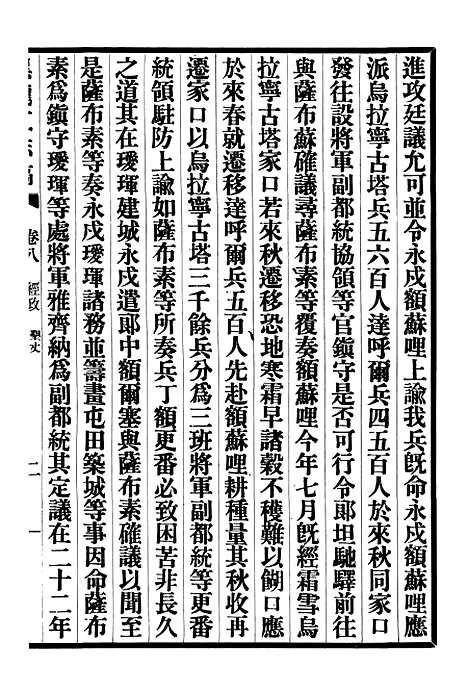 進攻廷議允可並令永戍額蘇哩上諭我兵旣命永戍額蘇哩應
派烏拉寧古塔兵五六百人達呼爾兵四五百人於來秋同家口
發往設將軍副都統協領等官鎭守是否可行令郎坦馳驛前往
與薩布蘇確議尋薩布素等覆奏額蘇哩今年七月旣經霜雪烏
拉寧古塔家口若來秋遷移恐地寒霜早諸穀不穫難以餬口應
於來春就遷移達呼爾兵五百人先赴額蘇哩耕種量其秋收再
遷家口以烏拉寧古塔三千餘兵分爲三班將軍副都統等更番
統領駐防上諭如薩布素等所奏兵丁額更番必致困苦非長久
之道其在璦琿建城永戍遣郎中額爾塞與薩布素確議以聞至
是薩布素等奏永戍璦琿諸務並籌畫屯田築城等事因命薩布
素爲鎭守璦琿等處將軍雅齊納爲副都統其定議在二十二年
卷八 經政 二